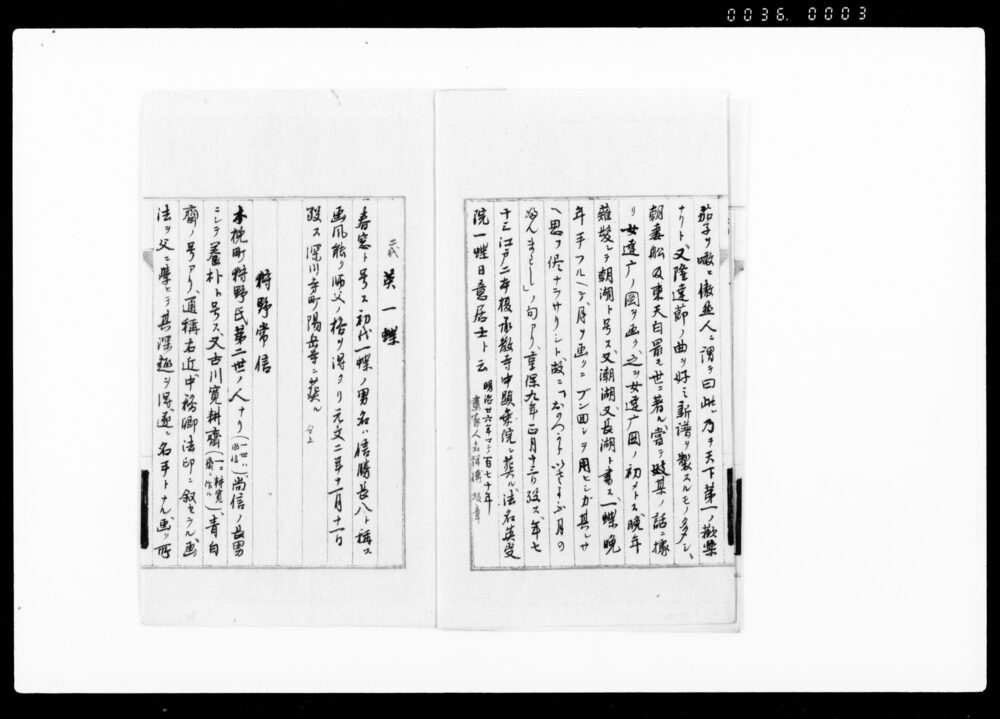 0036. 0003
茄子ヲ噉ヒ傲然人ニ謂テ曰此レ乃チ天下第一ノ歓楽
ナリト又隆達節ノ曲ヲ好ミ新譜ヲ製スルモノ多シ、
朝妻船及東天白最モ世ニ著ル、嘗テ妓某ノ話ニ據
リ女達广ノ図ヲ画ク之ヲ女達广図ノ初メトス晩年
薙髪シテ朝湖ト号ス又潮湖又長湖ト書ス一蝶晩
年手フルヘ月ヲ画クニブン回シヲ用ヒシガ其レサ
ヘ思フ儘ナラサリシト故ニ「おのつからいさよふ月の
ぶんまはし」ノ句アリ、享保九年正月十三日歿ス、年七
十三江戸二本榎承教寺中顕乗院ニ葬ル法名英受
院一蝶日意居士ト云 明治廿六年マデ百七十年
画家人名辞書
二代 英一蝶
春窓ト号ス初代一蝶ノ男名ハ信勝長八ト称ス
画風能ク師父ノ格ヲ得タリ元文二年十一月十二日
歿ス深川寺町陽岳寺ニ葬ル 仝上
狩野常信
木挽町狩野氏第二世ノ人ナリ(一世ハ尚信)尚信ノ長男
ニシテ養朴ト号ス、又古川寛耕齋(一ニ耕寛齋ニ作ル)、青白
齋ノ号アリ、通称右近、中務卿法印ニ叙セラル、画
法ヲ父ニ學ヒテ其深趣ヲ得、遂ニ名手トナル画ク所